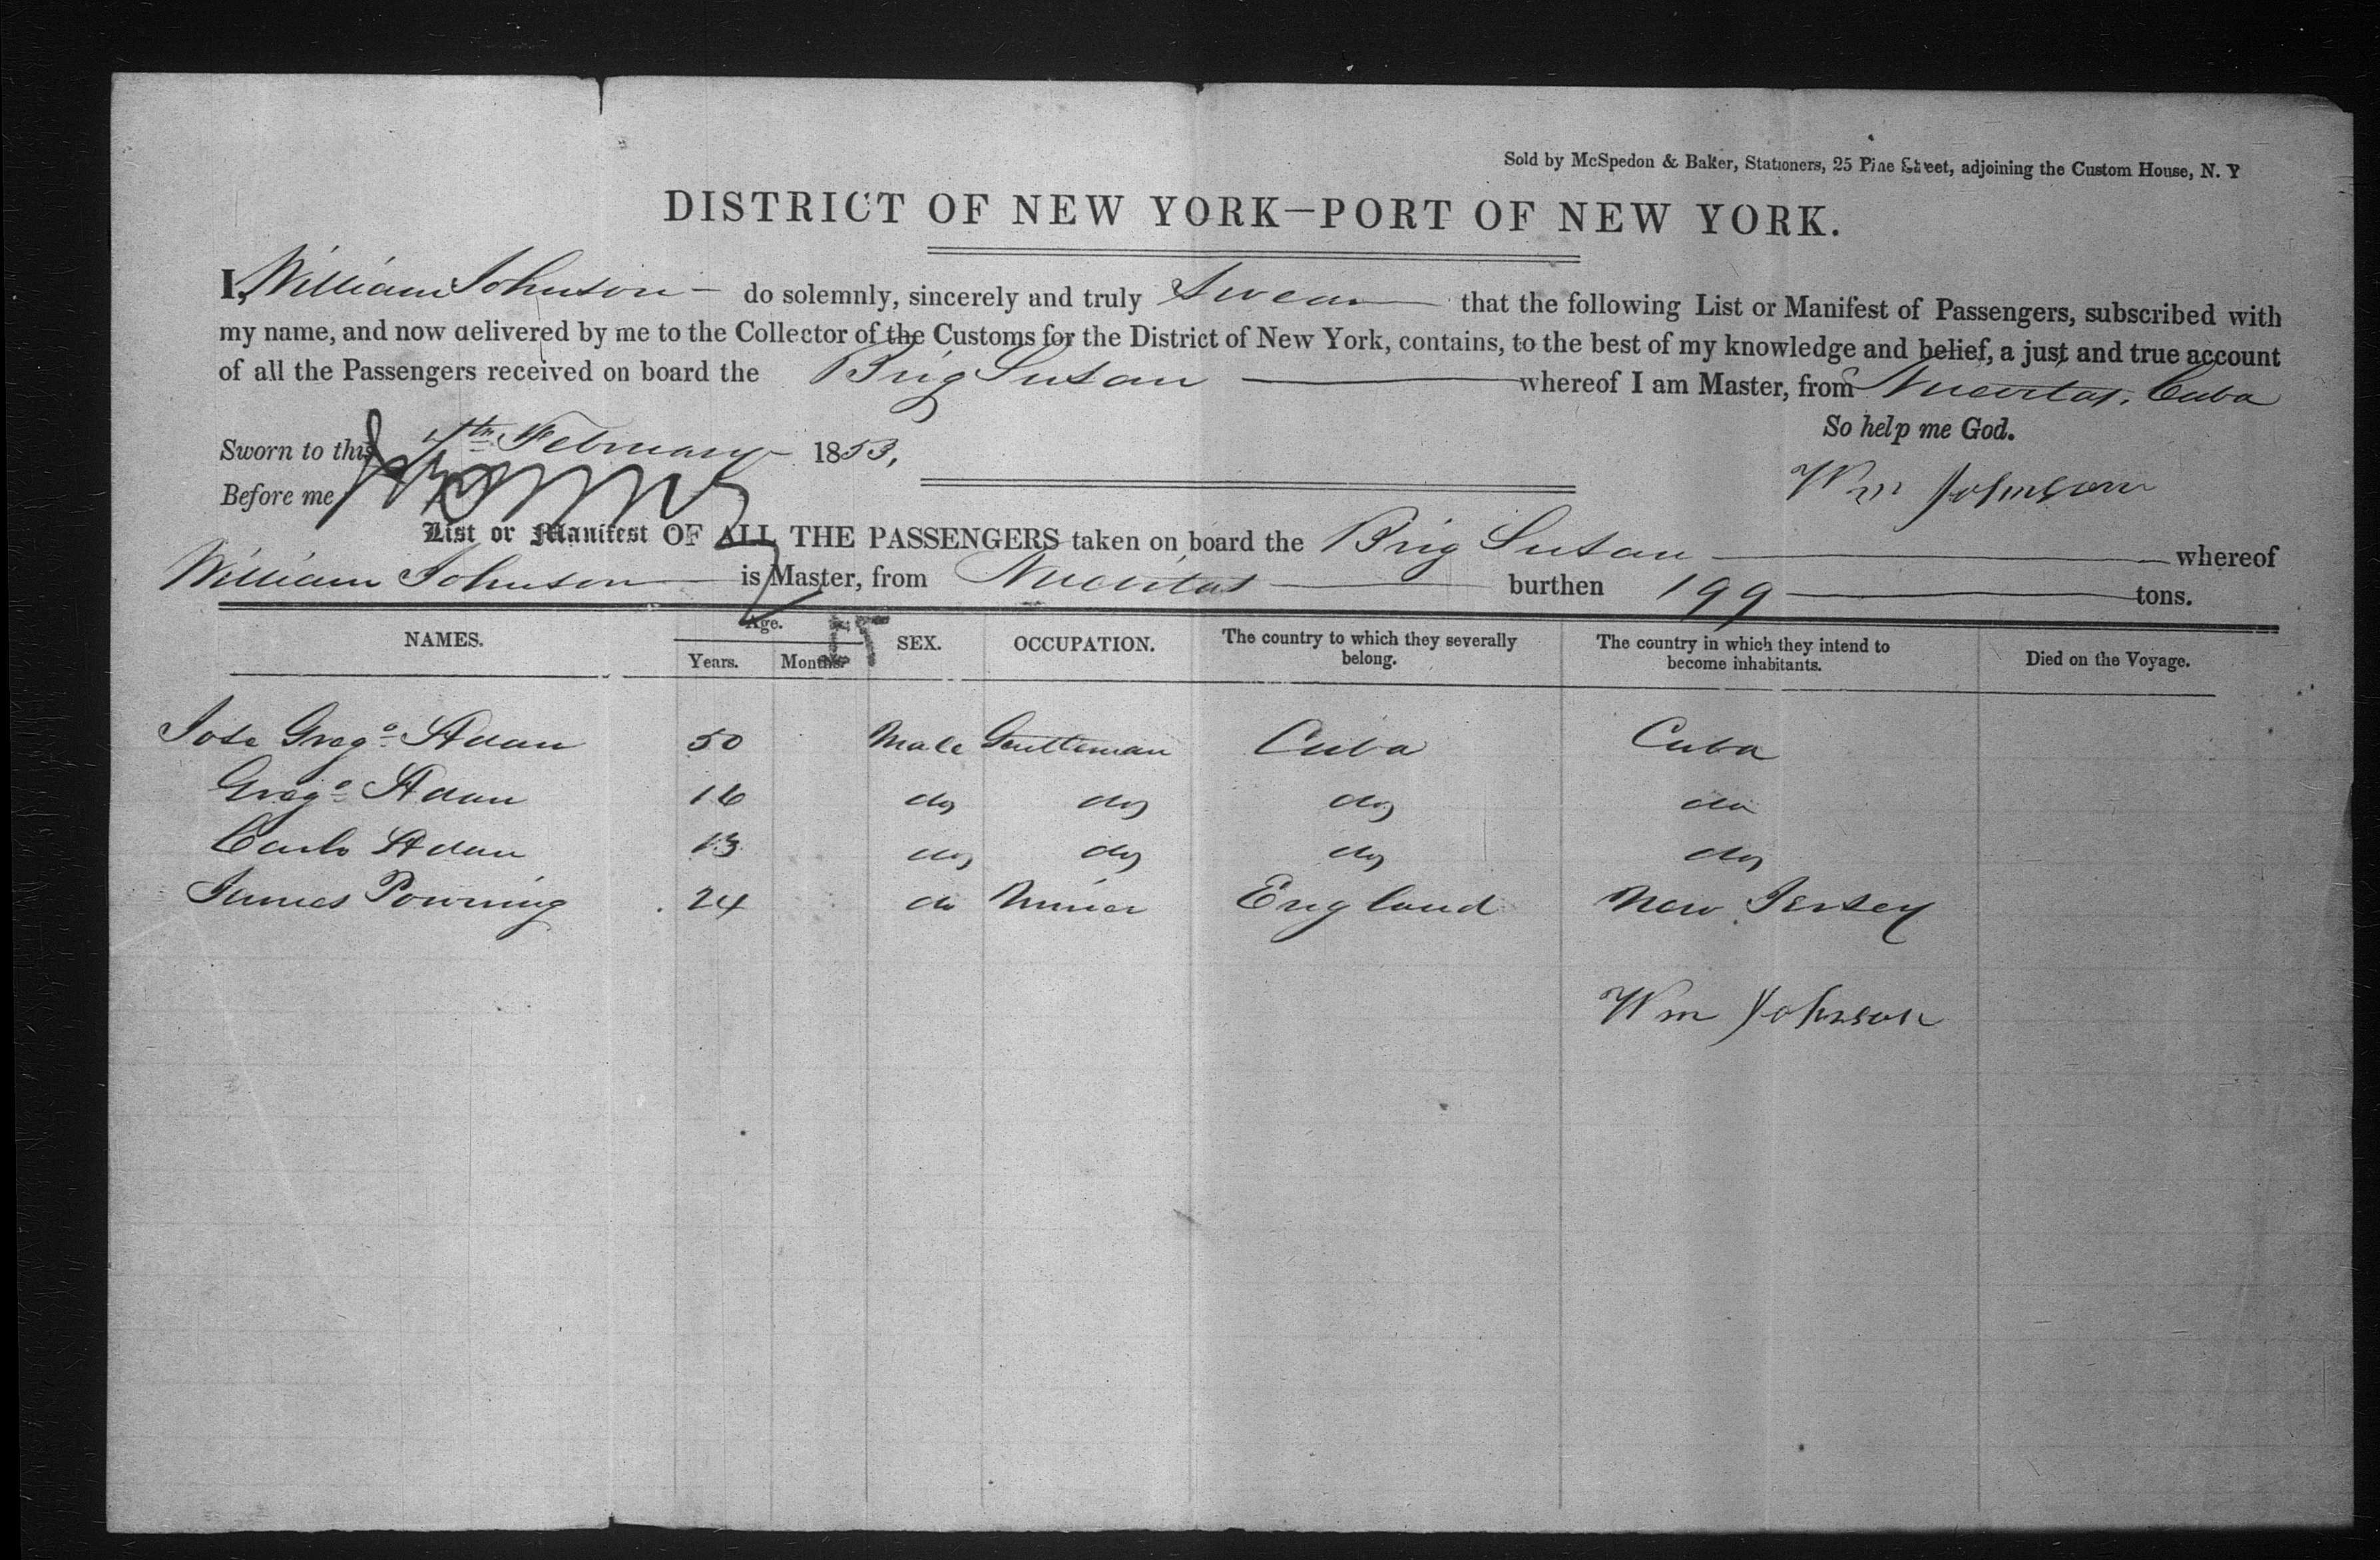 Sold by McSpedon & Baker, Stationers, 25 Pine Street, adjoining the Custom House, N. Y
DISTRICT OF NEW YORK—PORT OF NEW YORK.
I, William Johnson do solemnly, sincerely and truly Swear that the following List or Manifest of Passengers, subscribed with
my name, and now delivered by me to the Collector of the Customs for the District of New York, contains, to the best of my knowledge and belief, a just and true account
of all the Passengers received on board the Brig Susan whereof I am Master, from Nuevitas, Cuba
So help me God.
Sworn to this 4th February 1853,
Wm Johnson
Before me
List or Manifest OF ALL THE PASSENGERS taken on board the Brig Susan whereof
William Johnson is Master, from Nuevitas burthen 199 tons.
NAMES. Age. Years. Months. SEX. OCCUPATION. The country to which they severally belong. The country in which they intend to become inhabitants. Died on the Voyage.
Jose Grego Adan 50 Male Gentleman Cuba Cuba
Grego Adan 16 do do do do
Carlo Adan 13 do do do do
James Powning 24 do Miner England New Jersey
Wm Johnson